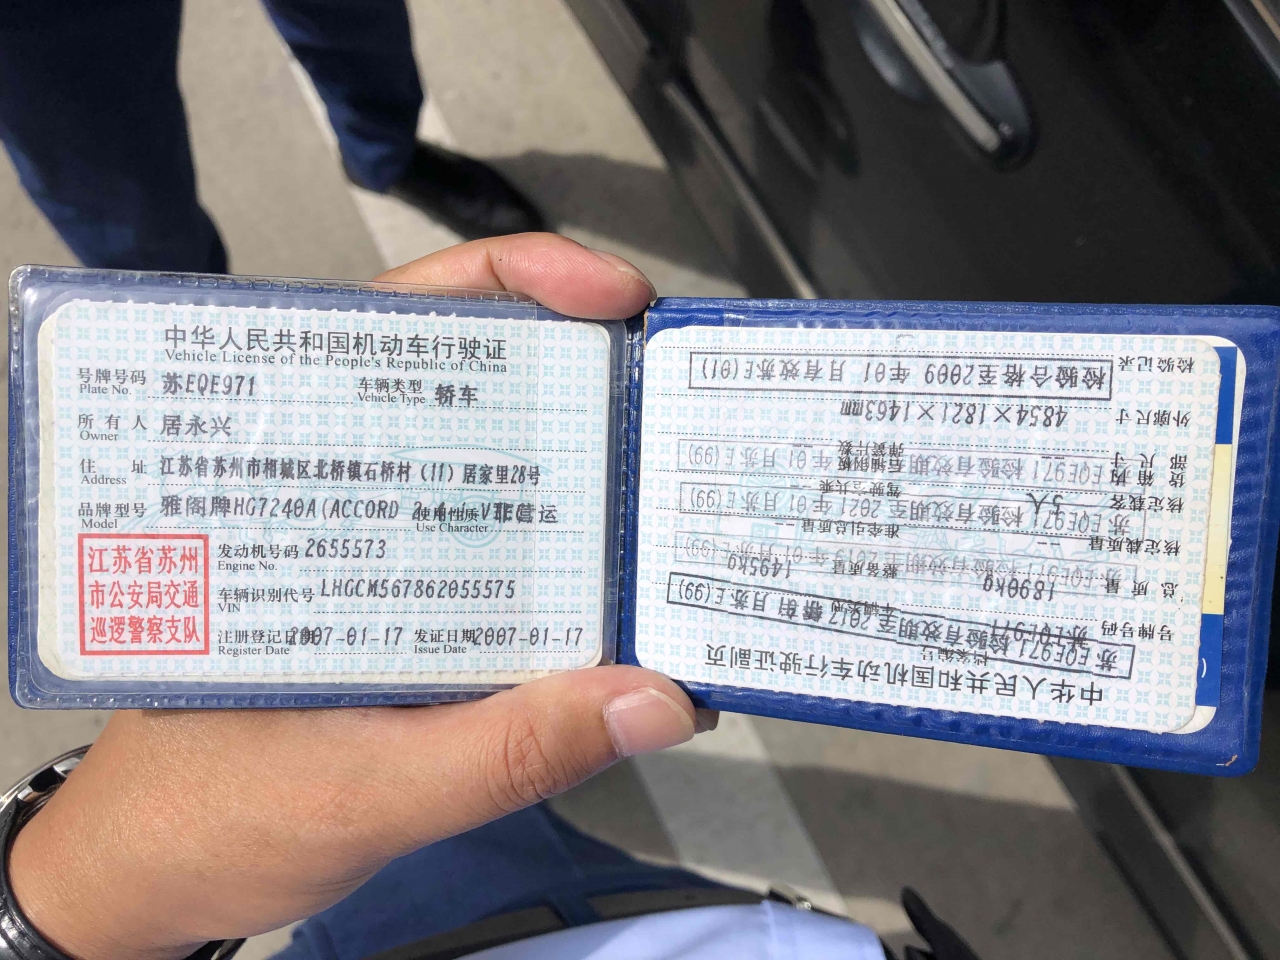 中华人民共和国机动车行驶证
Vehicle License of the People's Republic of China
号牌号码 苏EQE971 车辆类型 轿车
Plate No. Vehicle Type
所有人 居永兴
Owner
住址 江苏省苏州市相城区北桥镇石桥村(11)居家里28号
Address
品牌型号 雅阁牌HG7240A(ACCORD 使用性质 非营运
Model Use Character
江苏省苏州
市公安局交通
巡逻警察支队
发动机号码 2655573
Engine No.
车辆识别代号 LHGCM567862055575
VIN
注册登记日期 2007-01-17 发证日期 2007-01-17
Register Date Issue Date
中华人民共和国机动车行驶证副页
号牌号码 苏EQE971 车辆类型 轿车
苏EQE971检验有效期至2017年01月苏E(99)
总质量 1890kg 整备质量 1495kg
苏EQE971检验有效期至2019年01月苏E(99)
核定载质量 -- 准牵引总质量 --
核定载客 5人 驾驶室共乘 --
苏EQE971检验有效期至2021年01月苏E(99)
货箱内部尺寸 --
EQE971检验有效期 年01月苏E(99)
外廓尺寸 4854×1821×1463mm
检验记录 检验合格至2009年01月有效苏E(01)